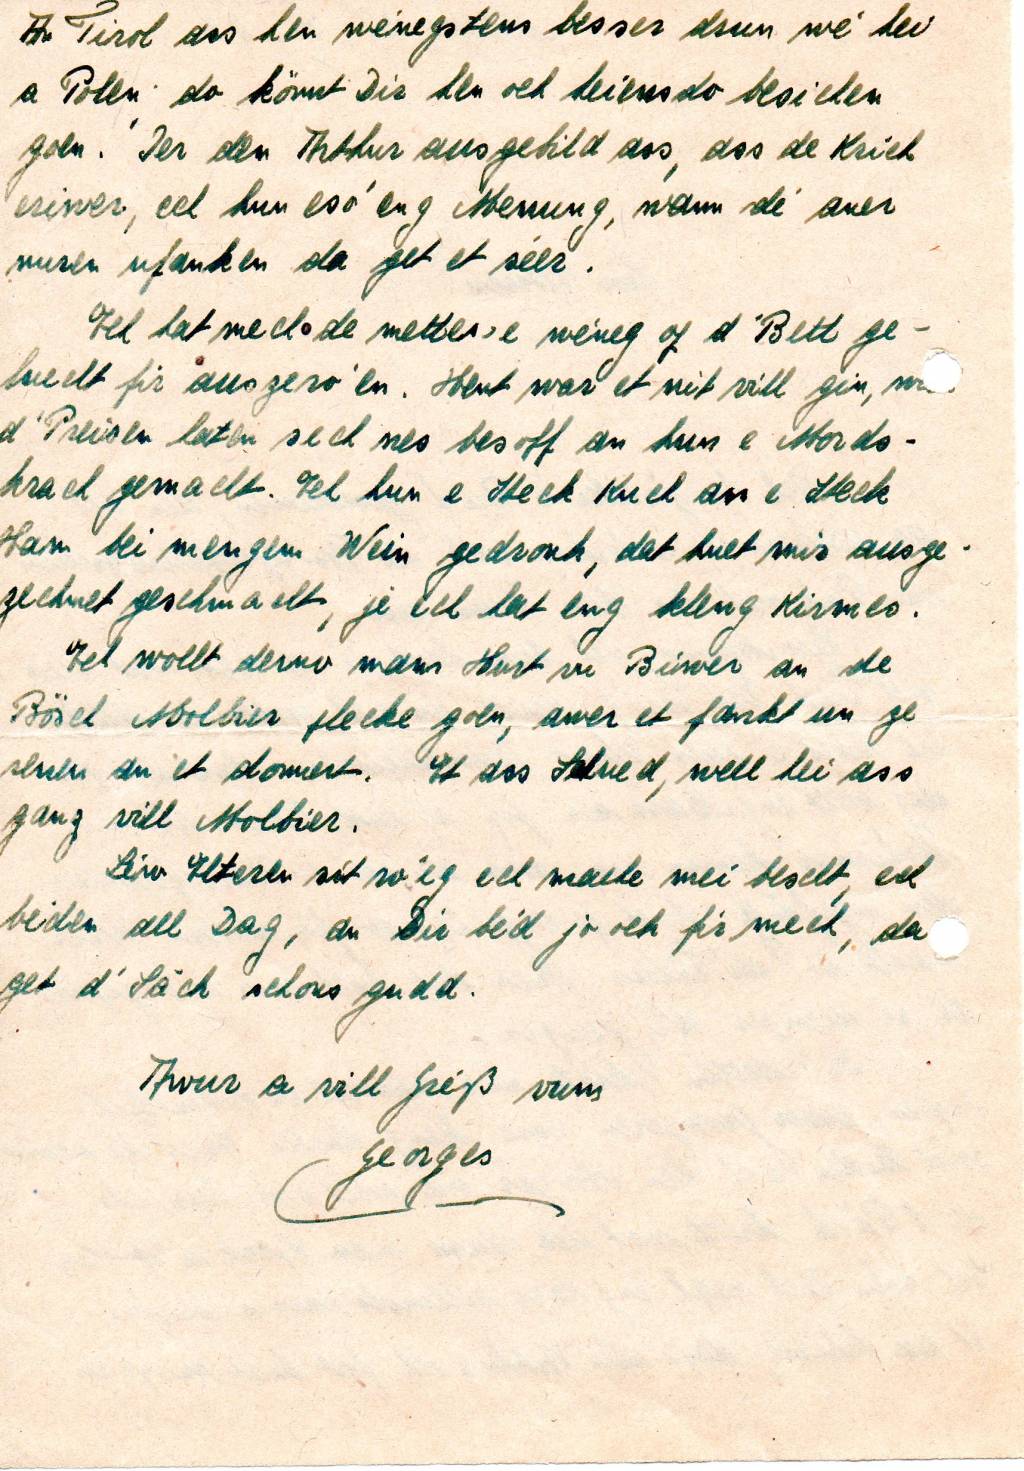 An Tirol ass hen wéinegstens besser drun wé hei
a Polen do könnt Dir hen och heiansdo besichen
goen. Ier den Arthur ausgebild ass, ass de Krich
eriwer, ech hun esó eng Menung, wann dé aner
nuren ufanken da get et séer.
Ech hat mech de metteg e wéneg op d'Bett ge-
luecht fir auszeró'en. Hent war et nit vill gin,
d'Preisen haten sech nes besoff an hun e Mords-
krach gemacht. Ech hun e Steck Kuch an e Steck
Ham bei mengem Wein gedronk, dat huet mir ausge-
zechnet geschmacht, jé ech hat eng kleng Kirmes.
Ech wollt derno mam Hurt vu Biwer an de
Bösch Molbier flecke goen, awer et fänkt un ze
renen an et donnert. Et ass Schued, well hei ass
ganz vill Molbier.
Léiw Elteren sit ró'eg ech mache mei bescht, ech
bieden all Dag, an Dir béd jo och fir mech, da
get d'Säch schons gudd.
Awur a vill Gréiß vum
Georges